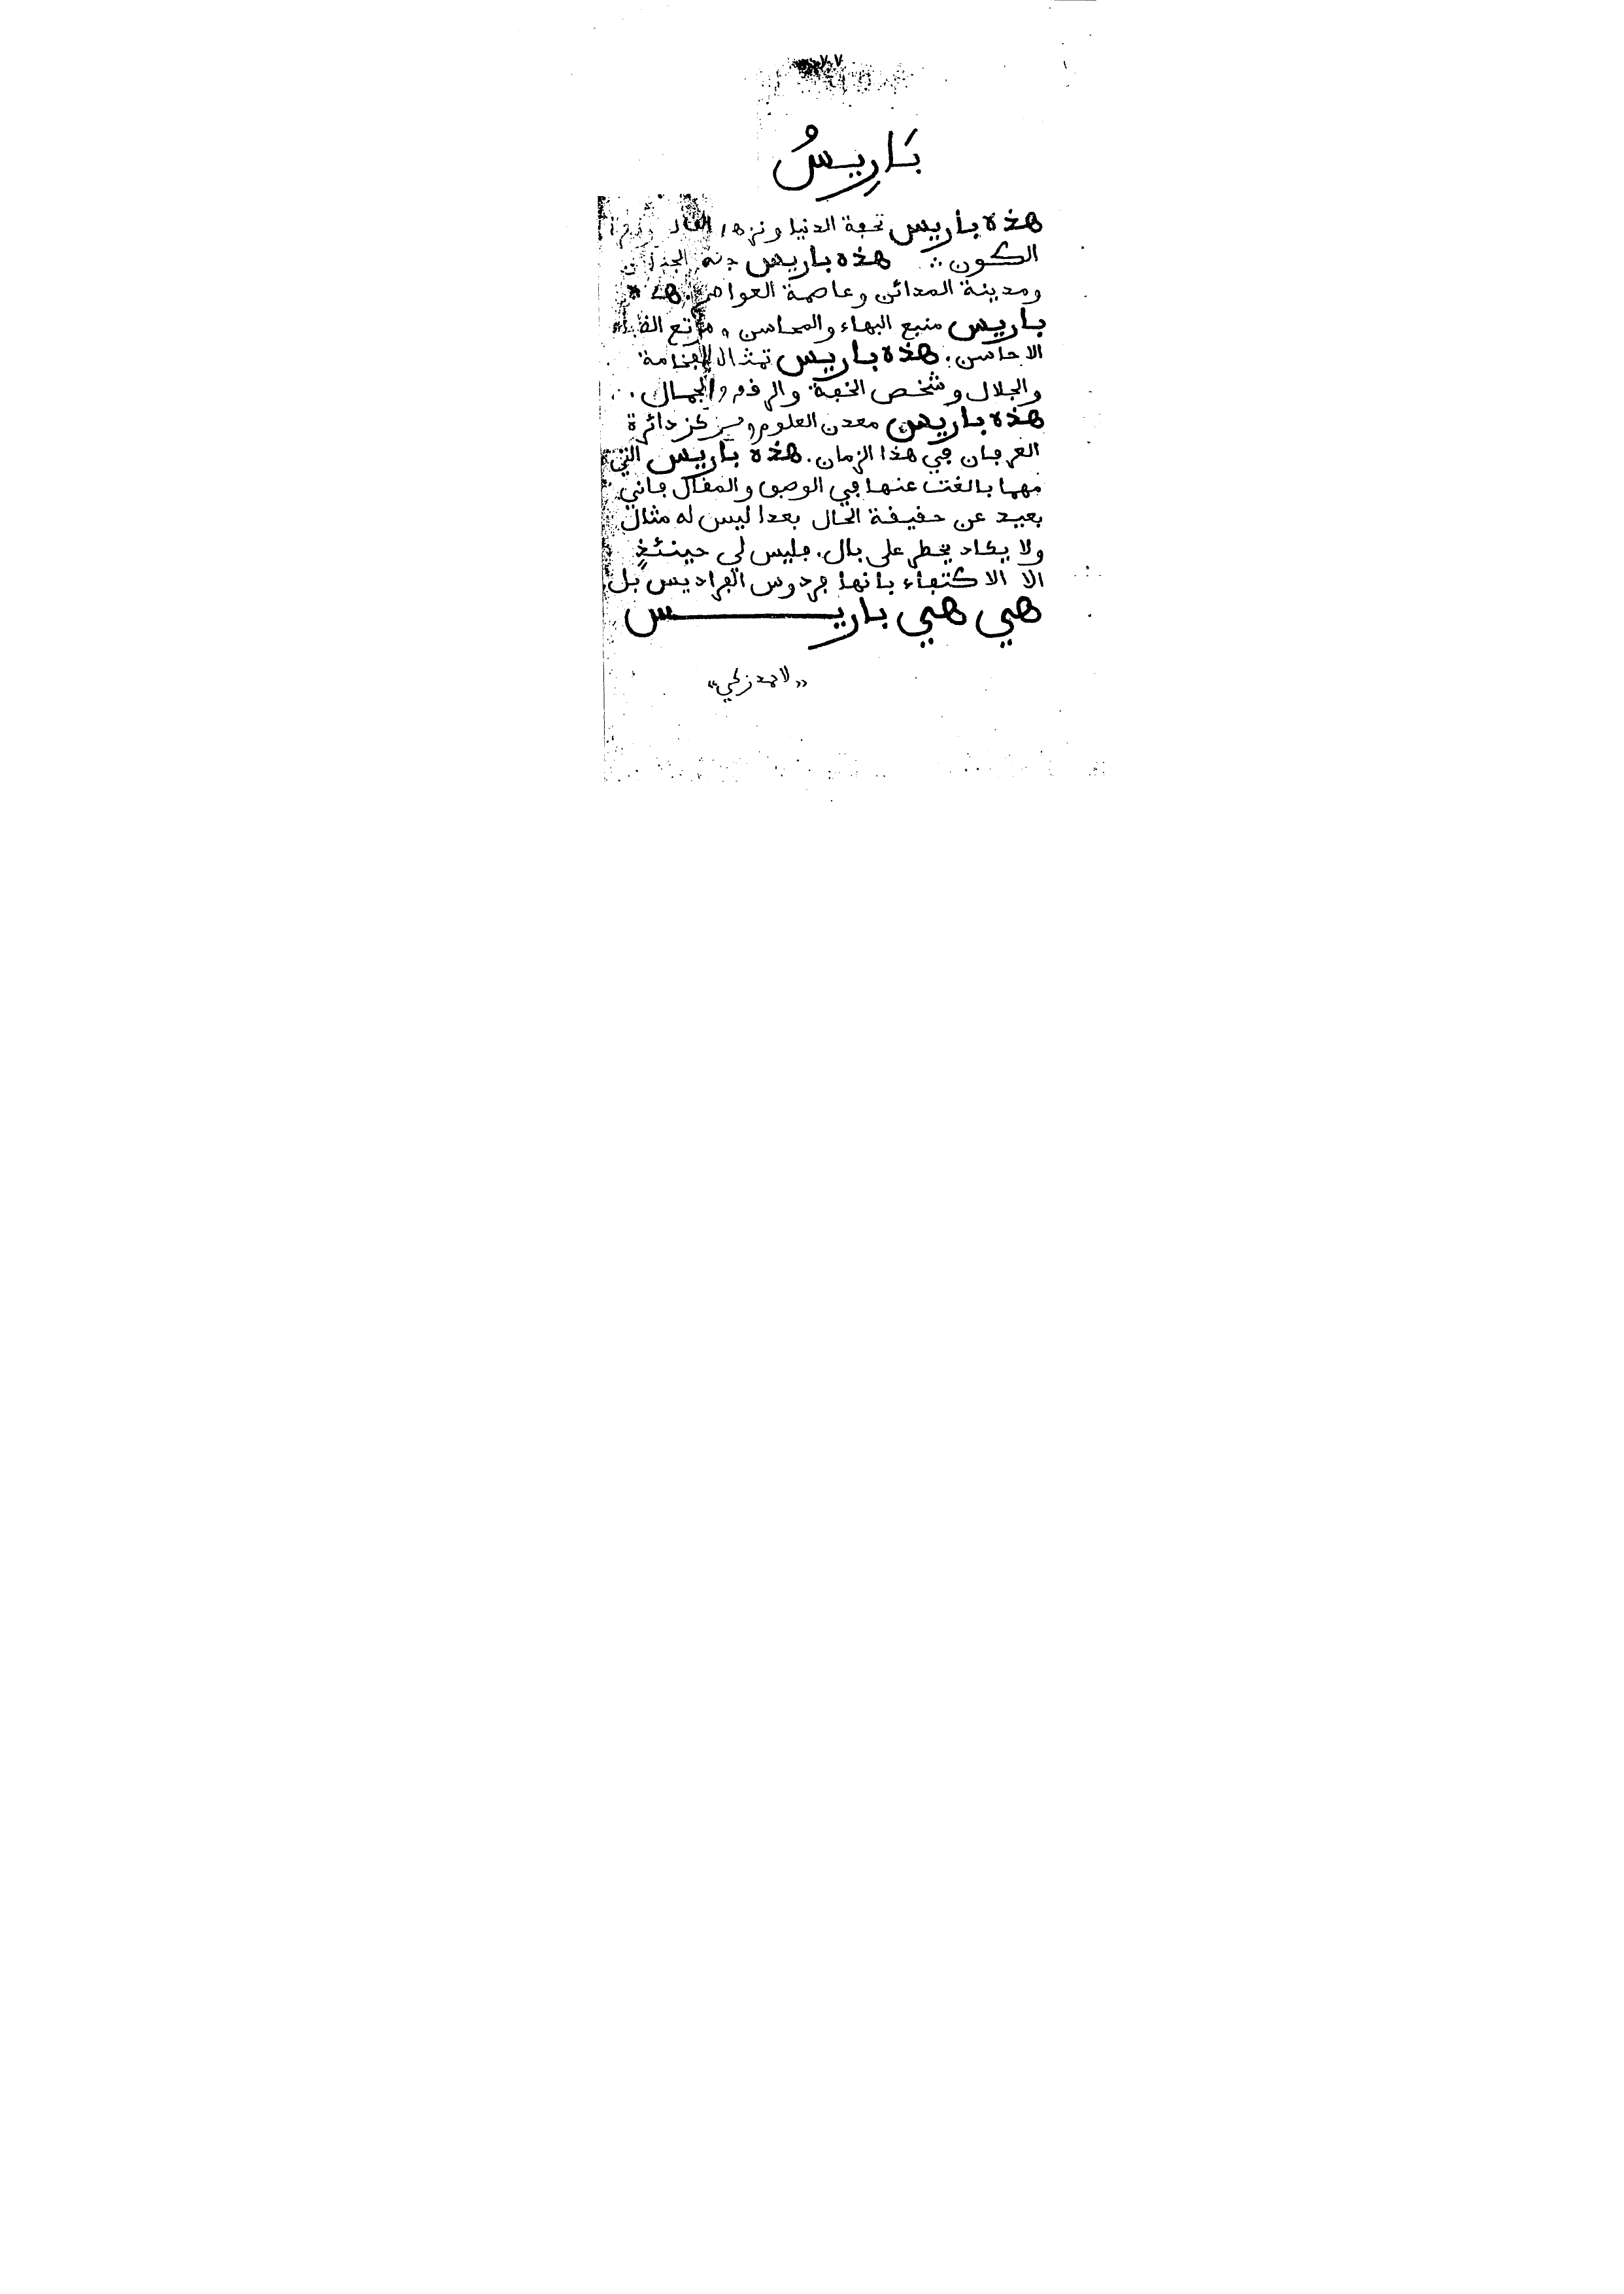 بَارِيسُ
هذه باريس تحفة الدنيا ونزهة
الكون ∴ هذه باريس جنة الجنان
ومدينة المدائن وعاصمة العواصم. هذه
باريس منبع البهاء والمحاسن ومرتع الظباء
الاحاسن. هذه باريس تمثال الفخامة
والجلال وشخص الخفة والرقة والجمال.
هذه باريس معدن العلوم ومركز دائرة
العرفان في هذا الزمان. هذه باريس التي
مهما بالغت عنها في الوصف والمقال فاني
بعيد عن حقيقة الحال بعدا ليس له مثال
ولا يكاد يخطر على بال. فليس لي حينئذٍ
الا الاكتفاء بانها فردوس الفراديس بل
هي هي باريـــــــس
«لاحمد زكي»